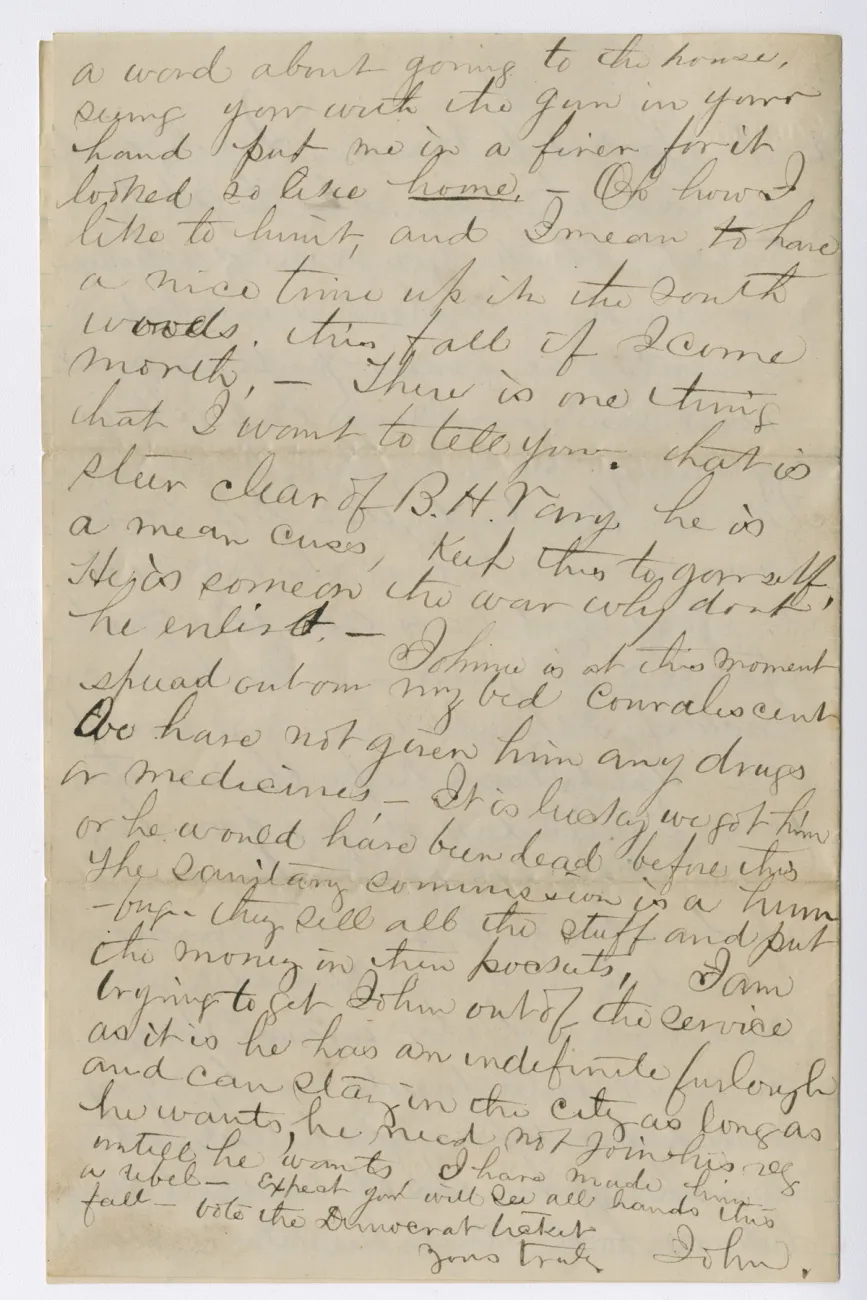 a word about going to the house,
seeing you with the gun in your
hand put me in a fever for it
looked so like home. — Oh how I
like to hunt, and I mean to have
a nice time up in the south
woods. this fall if I come
north, — There is one thing
that I want to tell you. that is
steer clear of B. H. Vary he is
a mean cuss, Keep this to yourself,
He is some on the war why dont
he enlist. —
Johnie is at this moment
spread out on my bed convalescent
We have not given him any drugs
or medicines, — It is lucky we got him
or he would have been dead before this
The sanitary commission is a hum
-bug - they sell all the stuff and put
the money in their pockets, I am
trying to get John out of the service
as it is he has an indefinite furlough
and can stay in the city as long as
he wants, he need not join his reg
untill he wants I have made him
a rebel — Expect you will see all hands this
fall — vote the Democrat ticket
yours truly John.